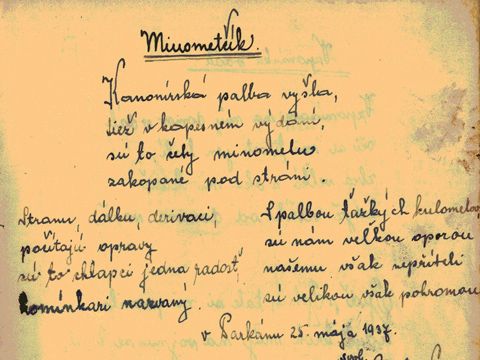 Minometčík.
Kanonírská palba vyšla,
tiež v kapesném vydání,
sú to čety minometu
zakopané pod stráni.
Stranu, dálku, derivaci,
počítajú opravy
sú to chlapci jedna radosť
komínkari nazvaný.
S palbou ťažkých kulometov,
sú nám velkou oporou
našemu však nepříteli
sú velikou však pohromou
v Parkánu 25. mája 1937.